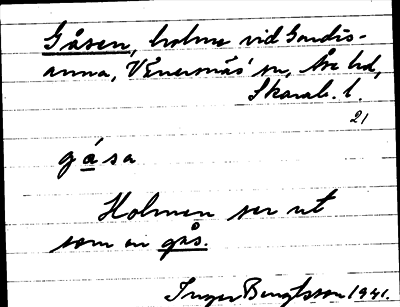 Gåsen, holme vid Sandö-
anna, V Enersnäs' sn, Åse hd,
Skarab. l.
21
gå̀sa
Holmen ser ut
som en gås.
Inger Bengtsson 1941.